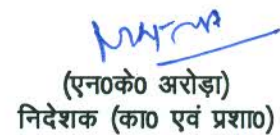 (एन0के0 अरोड़ा)
निदेशक (का0 एवं प्रशा0)